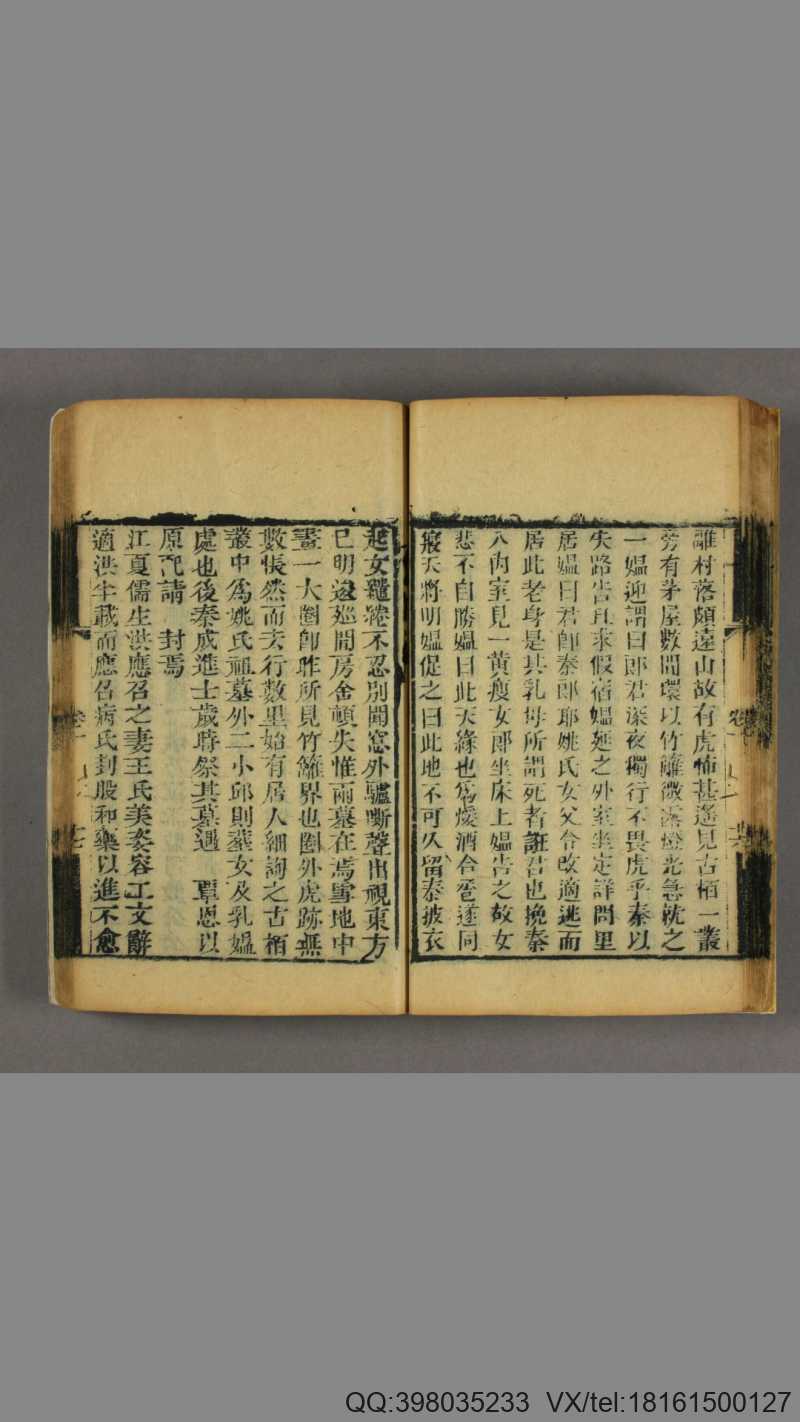 離村落頗遠山故有虎怖甚遙見古栢一叢
旁有茅屋數間環以竹籬微露燈光急就之
一媼迎謂曰郎君深夜獨行不畏虎乎秦以
失路告且求假宿媼延之外室坐定詳問里
居媼曰君即秦郎耶姚氏女父令改適逃而
居此老身是其乳母所謂死者誑君也挽秦
入內室見一黃瘦女郎坐床上媼告之故女
悲不自勝媼曰此天緣也為煖酒合巹遂同
寢天將明媼促之曰此地不可久留秦披衣
起女繾綣不忍別聞窓外驢嘶聲出視東方
已明逡廵間房舍頓失惟兩墓在焉雪地中
畫一大圈即昨所見竹籬界也圈外虎跡無
數悵然而去行數里始有居人細詢之古栢
叢中為姚氏祖墓外二小邱則葬女及乳媼
處也後秦成進士歲時祭其墓遇 覃恩以
原配請 封焉
江夏儒生洪應召之妻王氏美姿容工文辭
適洪半載而應召病氏刲股和藥以進不愈
卷一
QQ:398035233 VX/tel:18161500127